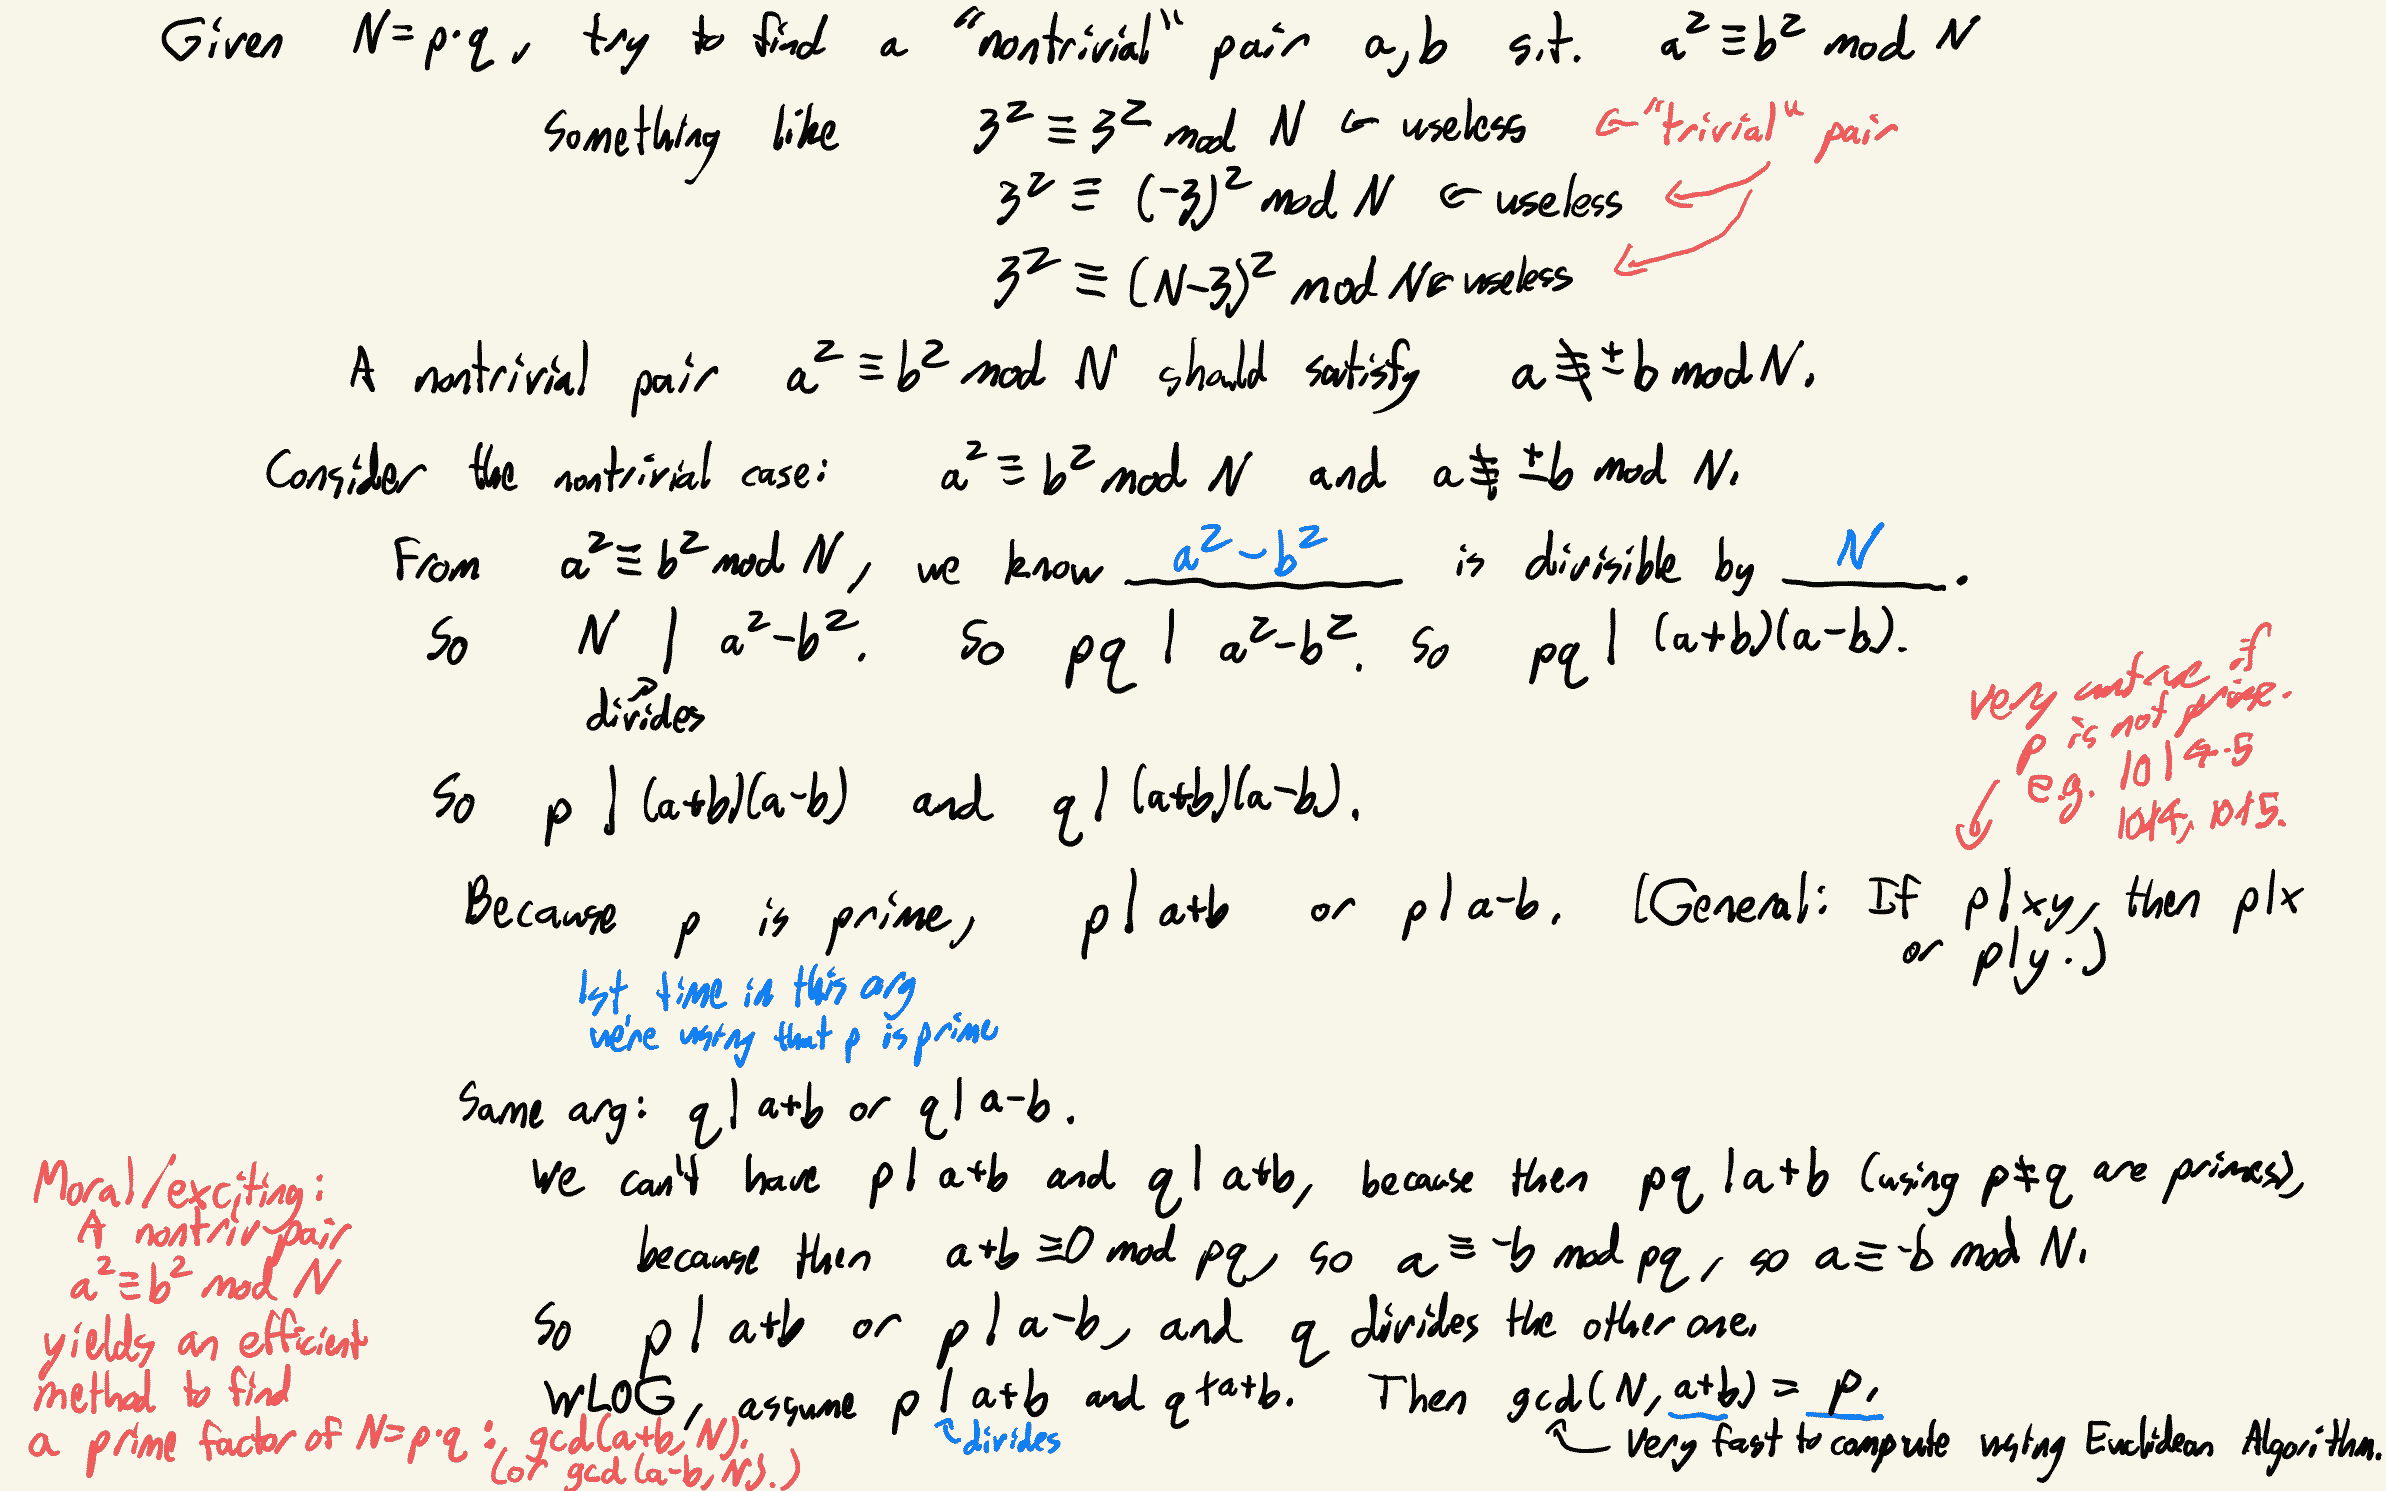 Given N=p·q, try to find a "nontrivial" pair a,b s.t. a² ≡ b² mod N
Something like 3² ≡ 3² mod N ← useless ← "trivial" pair
3² ≡ (-3)² mod N ← useless
3² ≡ (N-3)² mod N ← useless
A nontrivial pair a² ≡ b² mod N should satisfy a ≢ ±b mod N.
Consider the nontrivial case: a² ≡ b² mod N and a ≢ ±b mod N.
From a² ≡ b² mod N, we know a²-b² is divisible by N.
So N | a²-b². So pq | a²-b². So pq | (a+b)(a-b).
divides
very untrue if
p is not prime.
e.g. 10 | 4·5
10∤4, 10∤5.
So p | (a+b)(a-b) and q | (a+b)(a-b).
Because p is prime, p | a+b or p | a-b. (General: If p|xy, then p|x
or p|y.)
1st time in this arg
we're using that p is prime
Same arg: q | a+b or q | a-b.
We can't have p | a+b and q | a+b, because then pq | a+b (using p≠q are primes),
because then a+b ≡ 0 mod pq, so a ≡ -b mod pq, so a ≡ -b mod N.
So p | a+b or p | a-b, and q divides the other one.
WLOG, assume p | a+b and q ∤ a+b. Then gcd(N, a+b) = p.
divides
very fast to compute using Euclidean Algorithm.
Moral/exciting:
A nontriv pair
a² ≡ b² mod N
yields an efficient
method to find
a prime factor of N=p·q: gcd(a+b, N).
(or gcd(a-b, N).)